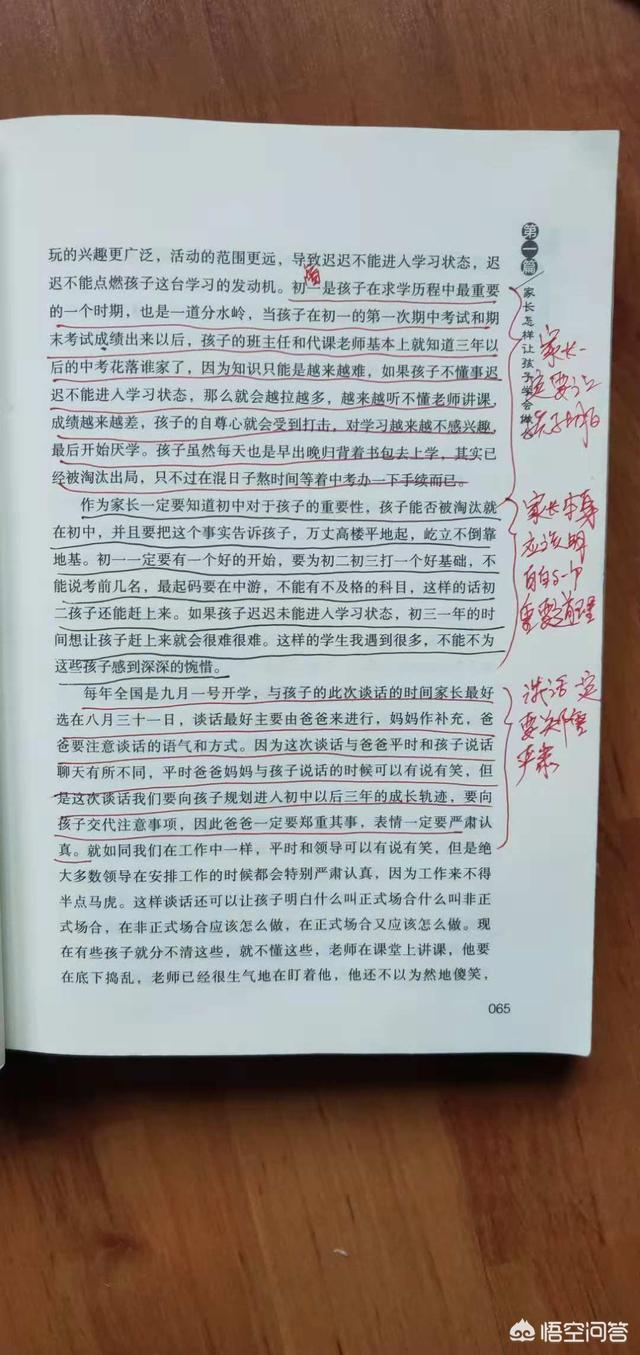 玩的兴趣更广泛，活动的范围更远，导致迟迟不能进入学习状态，迟
迟不能点燃孩子这台学习的发动机。初一是孩子在求学历程中最重要
的一个时期，也是一道分水岭，当孩子在初一的第一次期中考试和期
末考试成绩出来以后，孩子的班主任和代课老师基本上就知道三年以
后的中考花落谁家了，因为知识只能是越来越难，如果孩子不懂事迟
迟不能进入学习状态，那么就会越拉越多，越来越听不懂老师讲课，
成绩越来越差，孩子的自尊心就会受到打击，对学习越来越不感兴趣，
最后开始厌学。孩子虽然每天也是早出晚归背着书包去上学，其实已
经被淘汰出局，只不过在混日子熬时间等着中考办一下手续而已。
作为家长一定要知道初中对于孩子的重要性，孩子能否被淘汰就
在初中，并且要把这个事实告诉孩子，万丈高楼平地起，屹立不倒靠
地基。初一一定要有一个好的开始，要为初二初三打一个好基础，不
能说考前几名，最起码要在中游，不能有不及格的科目，这样的话初
二孩子还能赶上来。如果孩子迟迟未能进入学习状态，初三一年的时
间想让孩子赶上来就会很难很难。这样的学生我遇到很多，不能不为
这些孩子感到深深的惋惜。
每年全国是九月一号开学，与孩子的此次谈话的时间家长最好
选在八月三十一日，谈话最好主要由爸爸来进行，妈妈作补充，爸
爸要注意谈话的语气和方式。因为这次谈话与爸爸平时和孩子说话
聊天有所不同，平时爸爸妈妈与孩子说话的时候可以有说有笑，但
是这次谈话我们要向孩子规划进入初中以后三年的成长轨迹，要向
孩子交代注意事项，因此爸爸一定要郑重其事，表情一定要严肃认
真。就如同我们在工作中一样，平时和领导可以有说有笑，但是绝
大多数领导在安排工作的时候都会特别严肃认真，因为工作来不得
半点马虎。这样谈话还可以让孩子明白什么叫正式场合什么叫非正
式场合，在非正式场合应该怎么做，在正式场合又应该怎么做。现
在有些孩子就分不清这些，就不懂这些，老师在课堂上讲课，他要
在底下捣乱，老师已经很生气地在盯着他，他还不以为然地傻笑，
065
第一篇
家长怎样让孩子学会做
家长一
定要让
孩子明白
家长本身
应该明
白的一个
重要道理
谈话一定
要
严肃
悟空问答